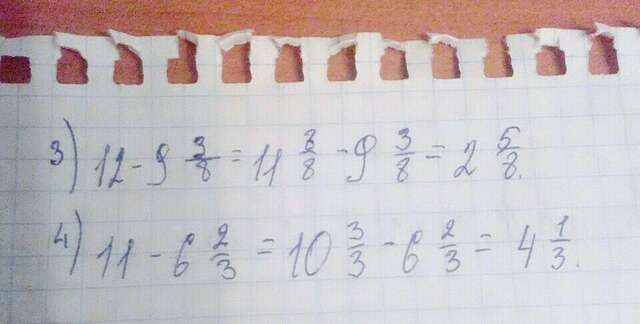 3) 12 - 9 3/8 = 11 8/8 - 9 3/8 = 2 5/8.
4) 11 - 6 2/3 = 10 3/3 - 6 2/3 = 4 1/3.